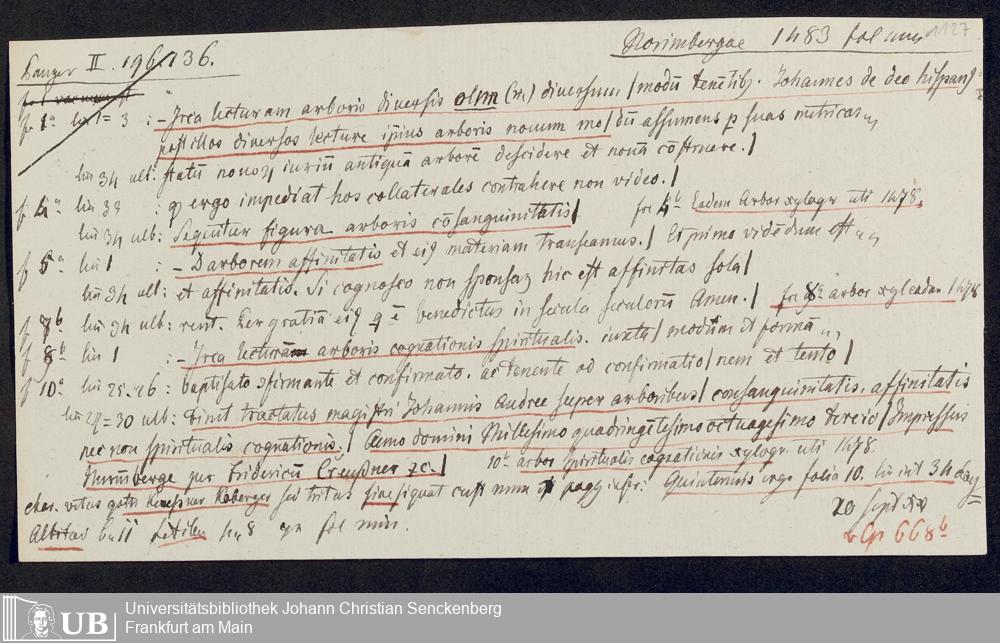 Panzer II. 196/136. Norimbergae 1483 fol min 1127
f 1a lin 1=3 : – Irca lecturam arboris diversis olim (rc.) diversum / modū tenētibȝ. Johannes de deo hispanꝯ
postillos diversos lecture ipius arboris novum mo/dū assumens p suas metricas
lin 34 ult: statū novoꝝ iuriū antiquā arborē descidere et novā cōstruere. /
f 4a lin 33 : q ergo impediat hos collaterales contrahere non video. /
lin 34 ulb: Sequitur figura arboris cōsanguinitatis / fri 4b Eadem Arbor xylogr uti 1478.
f 5a lin 1 : – D arborem affinitatis et eiꝯ materiam transeamus. / Et primo videndum est
lin 34 ult: et affinitatis. Si cognosco non sponsaȝ hic est affinitas sola /
f 7b lin 34 ulb: runt. Per gratiā eiꝯ q ē benedictus in secula seculorū Amen. / fri 8a arbor xyl eadem 1478
f 8b lin 1 : – Irca lecturam arboris cognationis spiritualis. iuxta / modum et formā
f 10a lin 25.26 : baptisato ɔfirmante et confirmato. ac tenente ad confirmatio / nem et tento /
lin 27=30 ulb: Finit tractatus magistri Johannis Andree super arboribus / consanguinitatis. affinitatis
nec non spiritualis cognationis. / Anno domini Millesimo quadringētesimo octuagesimo tercio / Impressus
Nurmberge per Fridericū Creußner ꝛc. / 10b arbor Spiritualis cognationis xylogr. uti 1478.
char. vetus goth Koberger sed tritus sine signat cust num et pagg inscr. Quinternis ergo folia 10. lin int 34
20 Sept
fol min.
Gr 668b
Universitätsbibliothek Johann Christian Senckenberg
UB Frankfurt am Main